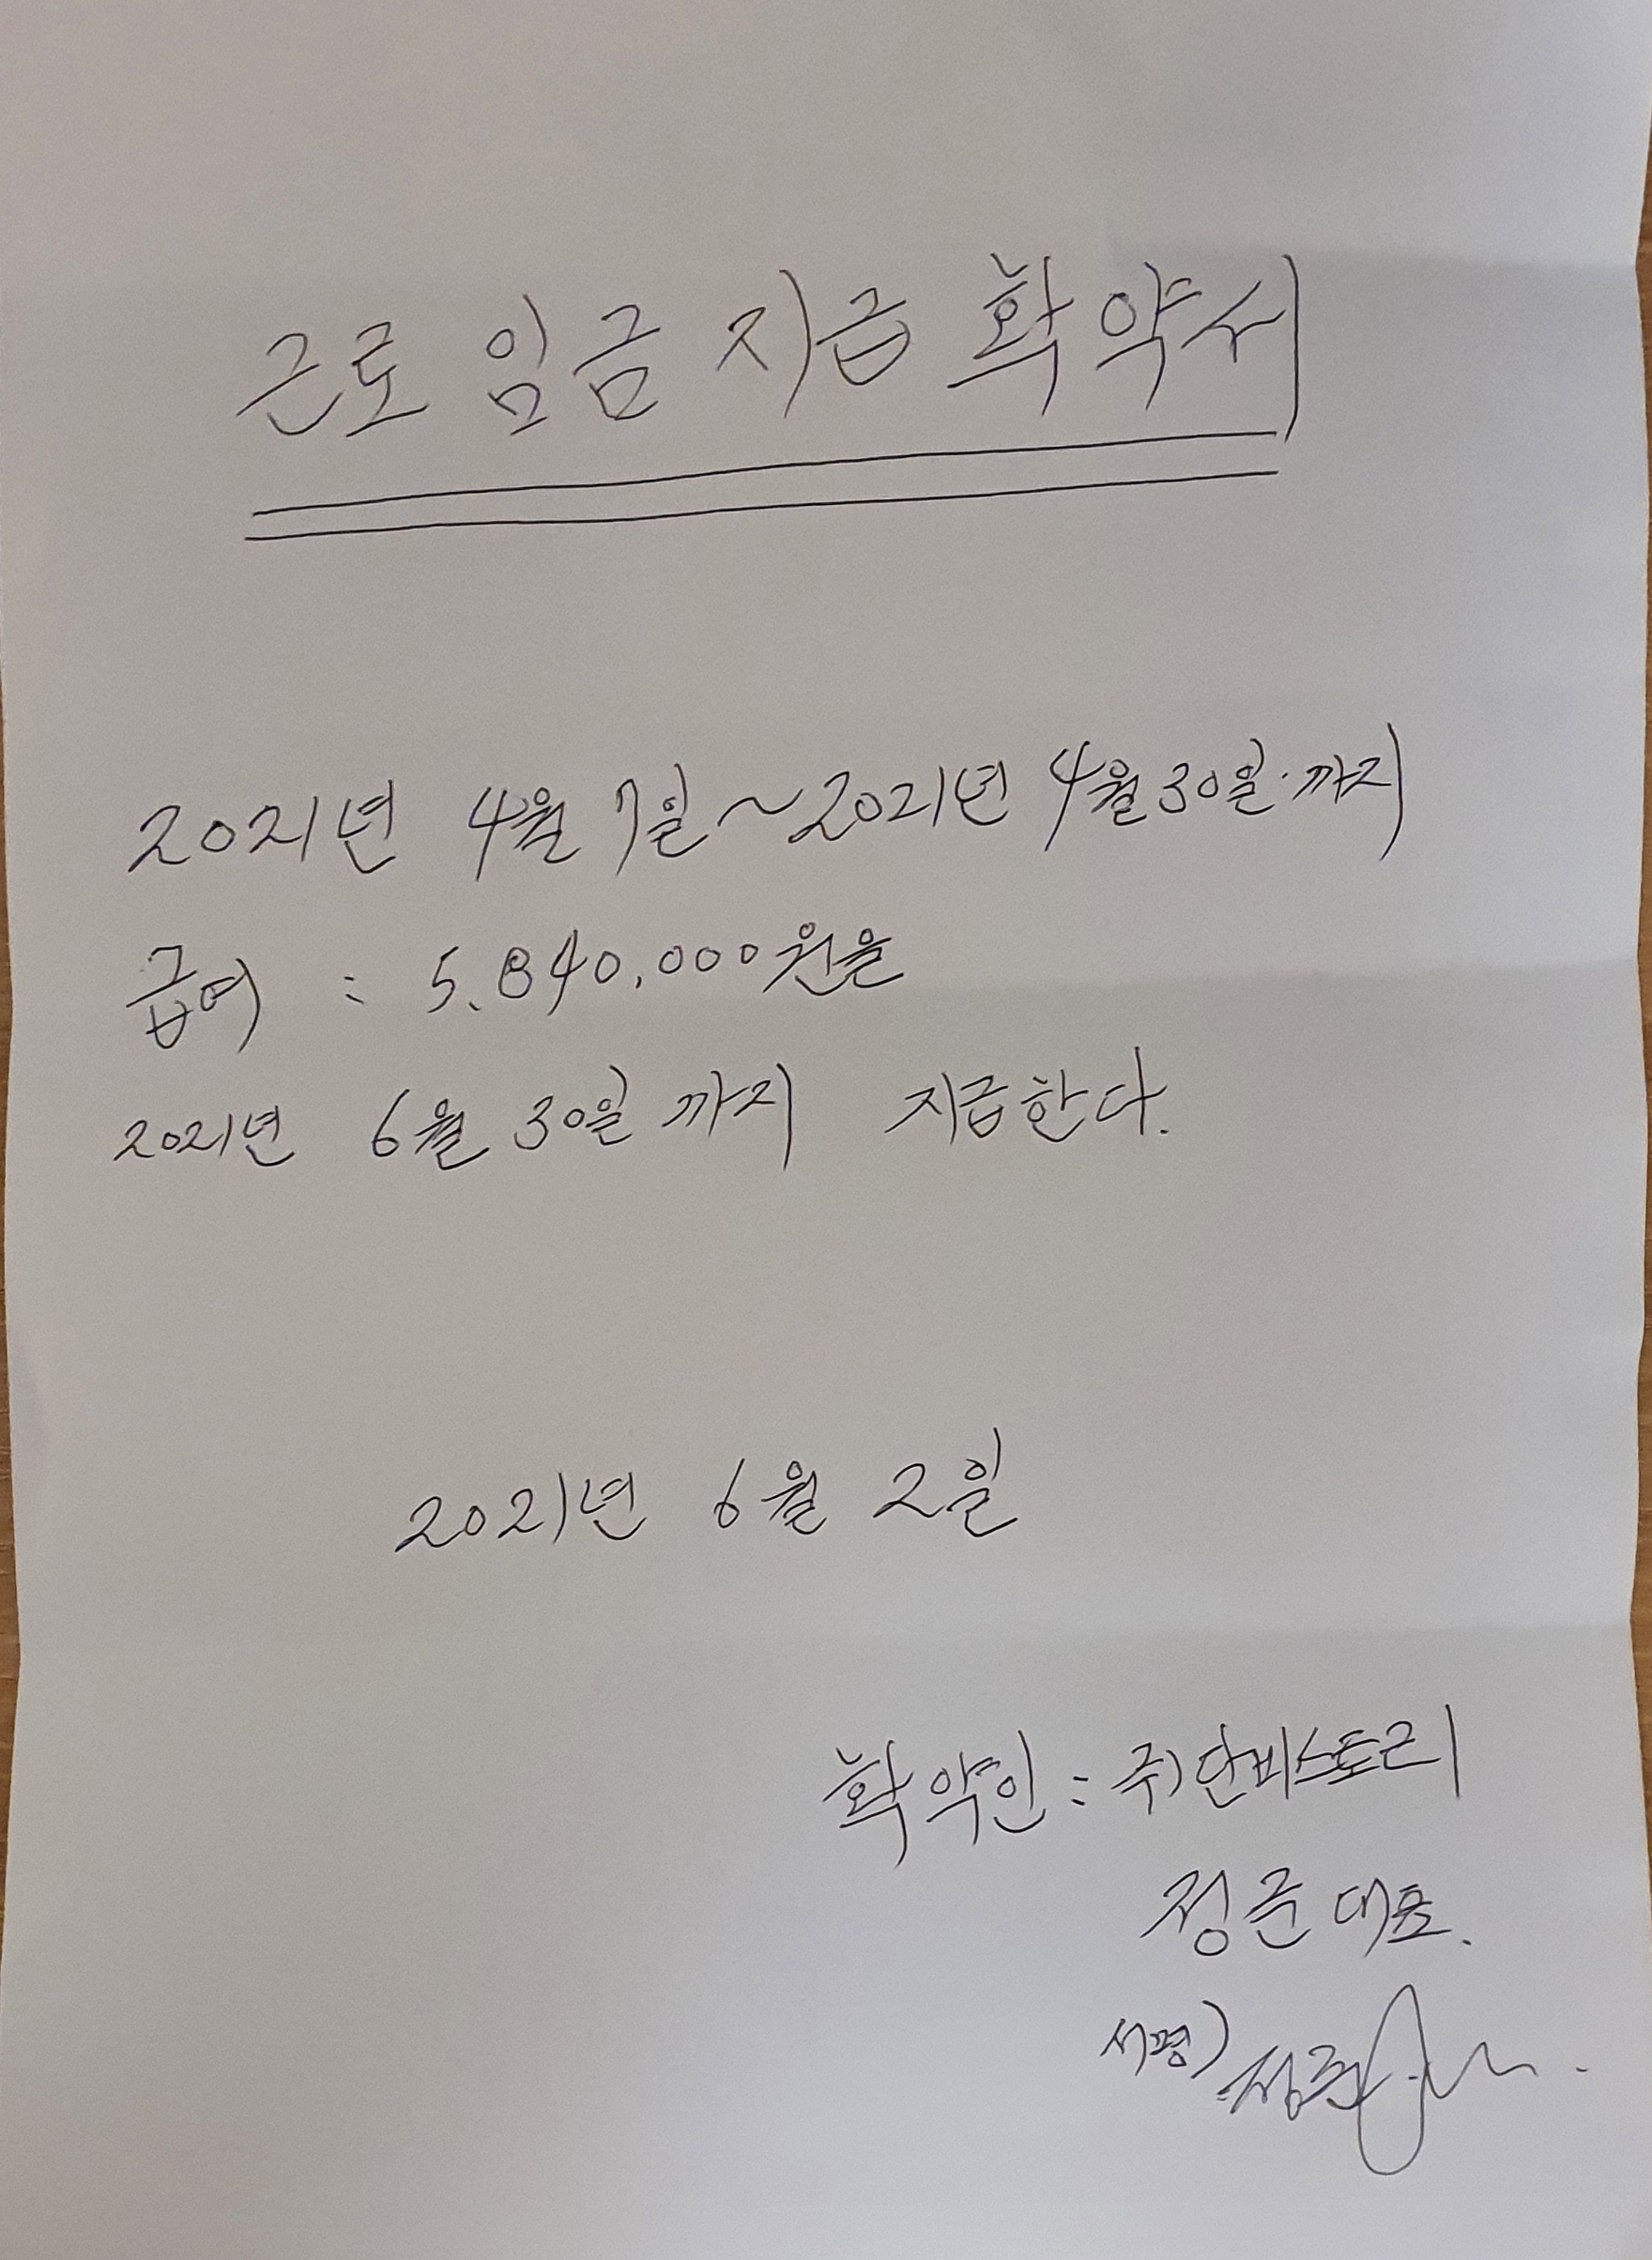 근로 임금 지급 확약서
2021년 4월 7일~2021년 4월 30일·까지
급여 : 5.840,000원을
2021년 6월 30일 까지 지급한다.
2021년 6월 2일
확약인 : 주)단비스토리
정근 대표.
서명) 정근